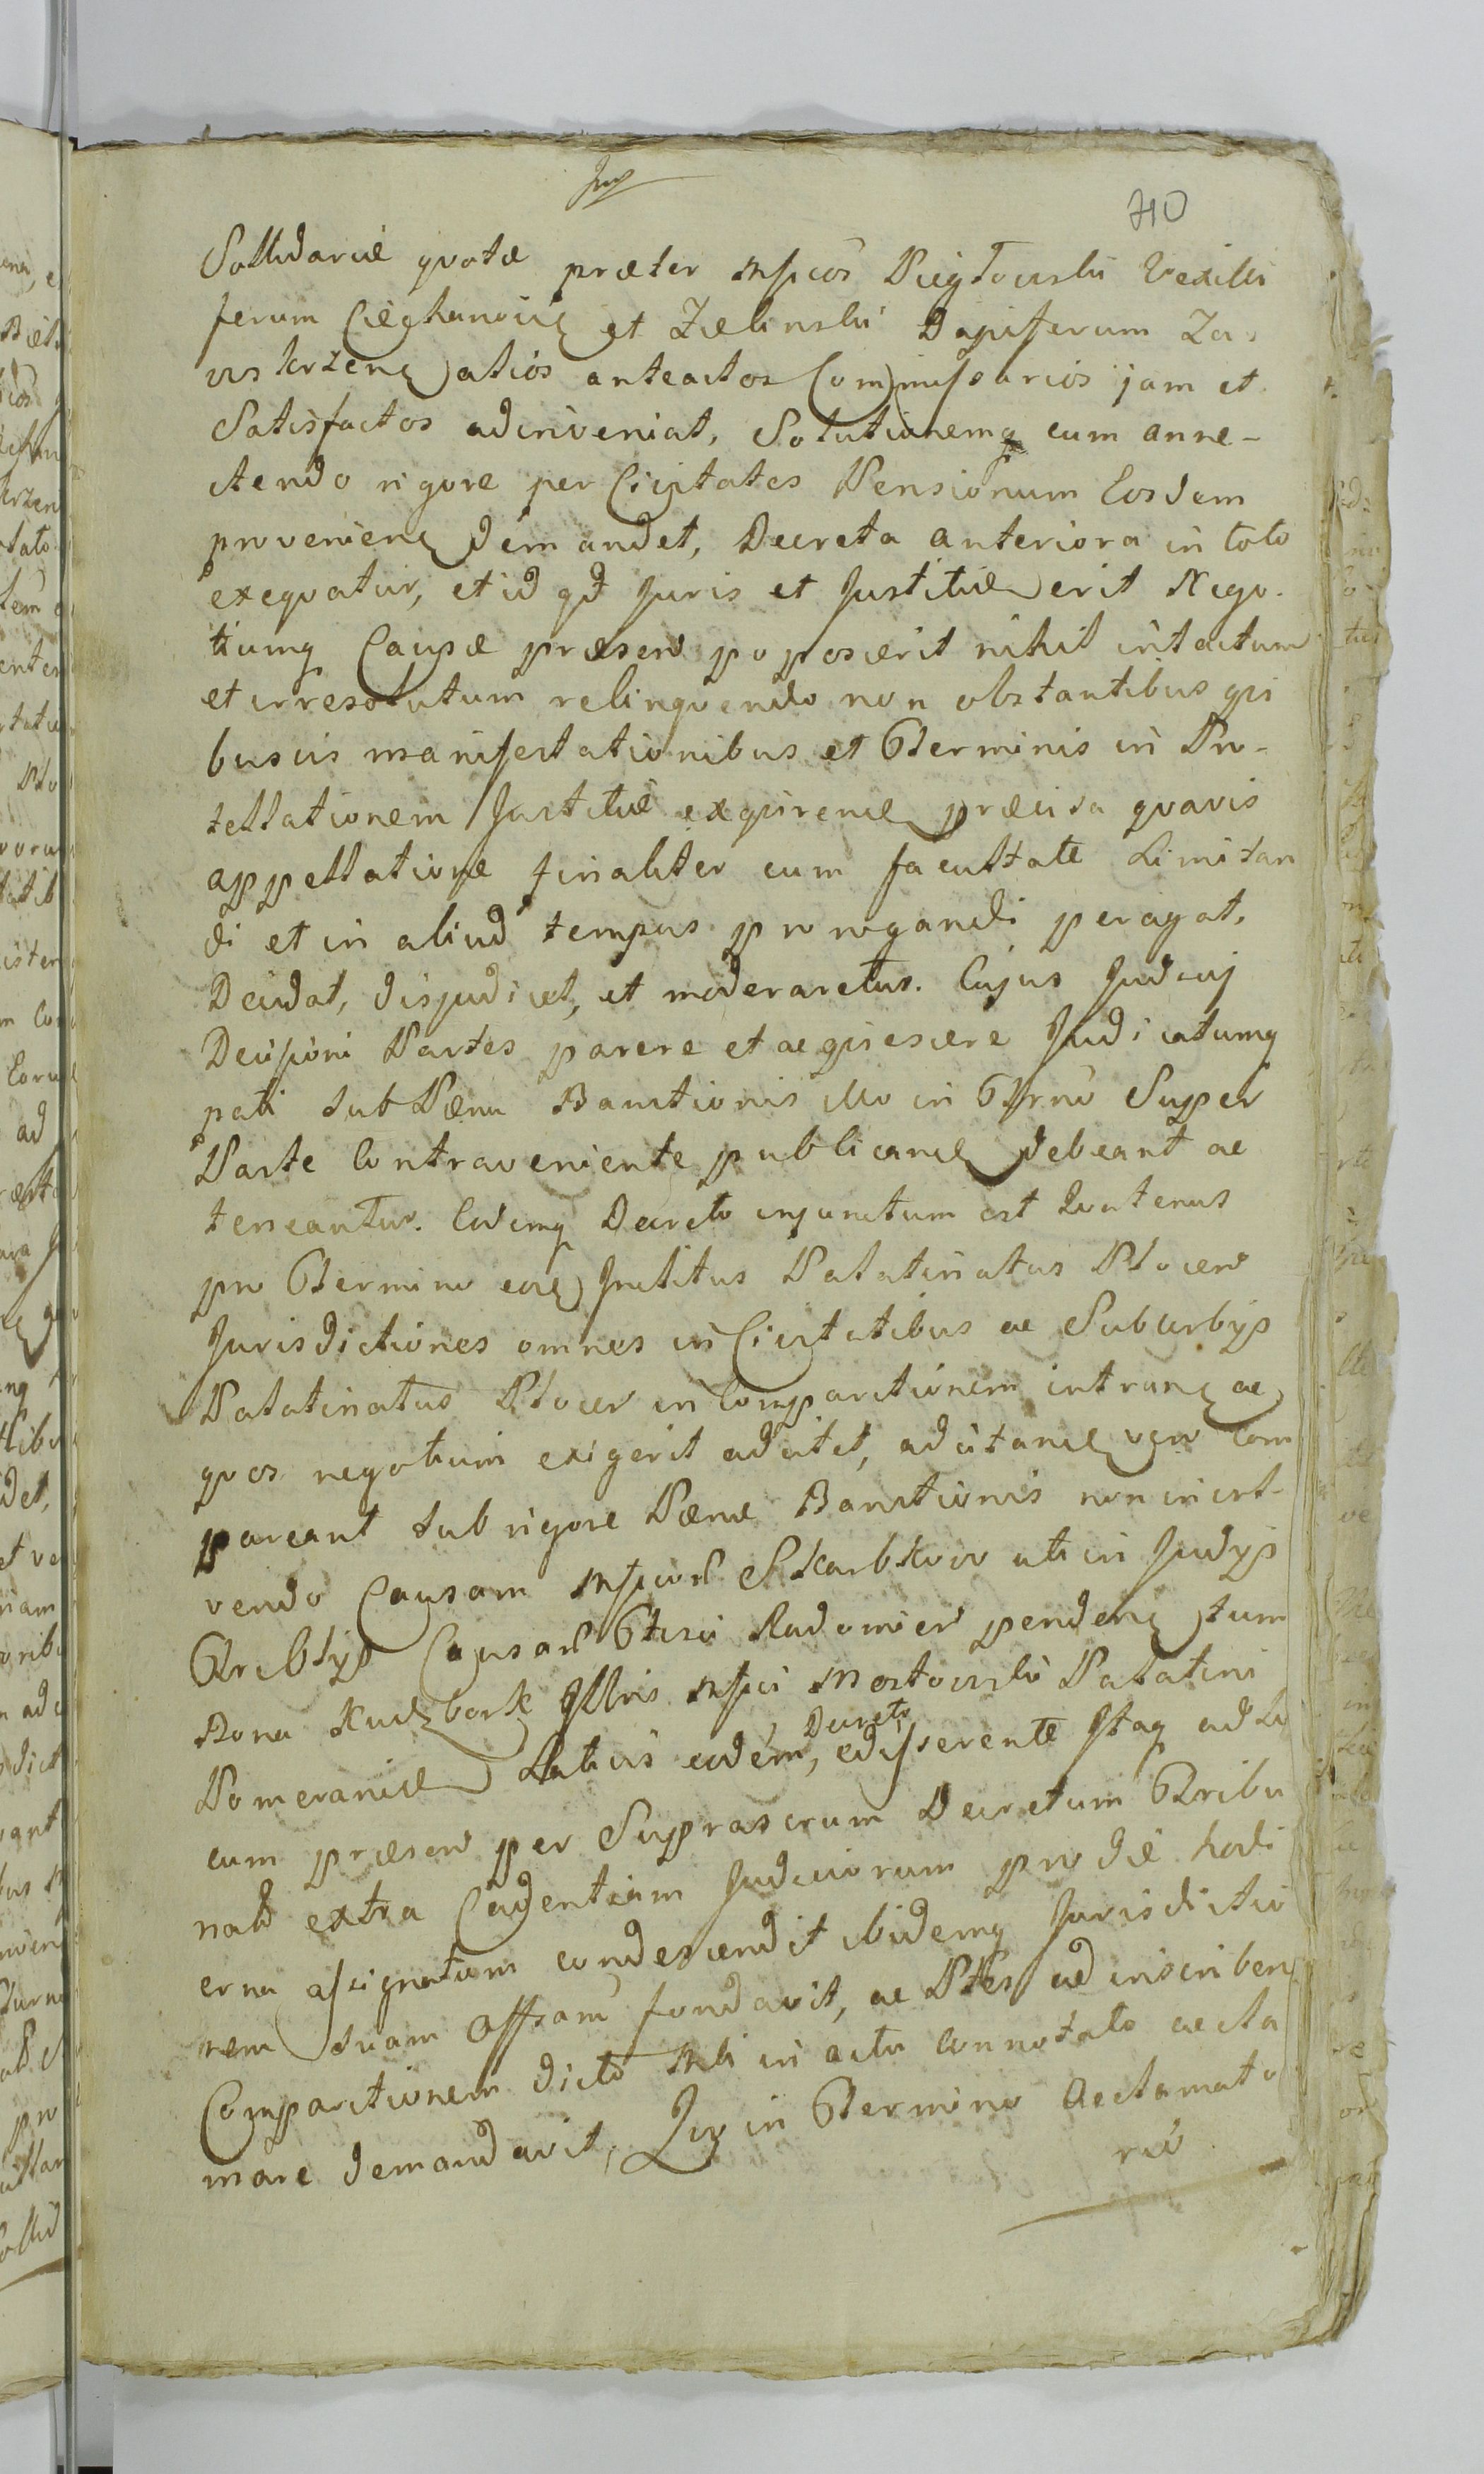 710
Sollidariæ quotæ præter Mficos Piegłowski Vexilli
ferum Ciechanovię et Zielinski Dapiferum Za
wskrzenę alios anteactos Commissarios jam et
Satisfactos adinveniat, Solutionemq cum anne-
ctendo rigore per Civitates Pensionum Eosdem
provenienę demandet, Decreta anteriora in toto
exequatur, et id qd Juris et Justitiæ erit Nego-
tiumq Causæ præsens poposcerit nihil intactum
et irresolutum relinquendo non obstantibus qui
busvis manifestationibus et Terminis in Pro-
tellationem Justitiæ exquirenę præcisa quavis
appellatione finaliter cum facultate Limitan
di et in aliud tempus prorogandi peragat,
Decidat, disjudicet, et moderaretur. Cujus Judicij
Decisioni Partes parere et acquiescere Judicatumq
pati sub Pæna Bannitionis illico in Trno Super
Parte Contraveniente publicandę debeant ac
teneantur. Eodemq Decreto injunctum est Quatenus
pro Termino eoię Jnstitus Palatinatus Plocens
Jurisdictiones omnes in Civitatibus ac Suburbijs
Palatinatus Plocens in Comparitionem intranę ac
quos negotium exigerit adcitet, adcitandę vero com
pareant sub rigore Pænæ Bannitionis non invol-
vendo Causam Mficor Skarbkow uti in Judijs
Treblijs Causar Fisci Radomiens pendenę tum
Bona Kuczbork Jllris Mfici Mostowski Palatini
Pomeraniæ Latius eodem, Decreto edisserente Jtaq ad Lo
cum præsens per Suprascrum Decretum Tribu
nald extra Cadentiam Judiciorum pro die hodi
erna assignatum condescendit ibidemq Jurisdictio
nem suam Offsam fundavit, ac Ptes ad inscriben
Comparitionem dicto Mli in actu connotato accla
mare demandavit, Quo in Termino Acclamato
rio